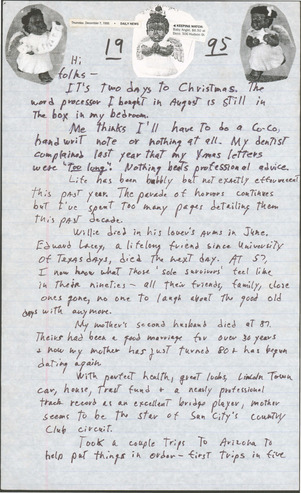 Thursday, December 7, 1995 • DAILY NEWS
KEEPING WATCH:
19 95
Hi
folks –
IT's two days to Christmas. The
word processor I bought in August is still in
the box in my bedroom.
Me thinks I'll have to do a Co-Co,
hand writ note or nothing at all. My dentist
complained last year that my Xmas letters
were "Too long". Nothing beats professional advice.
Life has been bubbly but not exactly effervescent
this past year. The parade of horrors continues
but I've spent too many pages detailing them
this past decade.
Willie died in his lover's arms in June.
Edward Lacey, a lifelong friend since University
of Texas days, died the next day. At 57,
I now know what those 'sole survivors' feel like
in their nineties – all their friends, family, close
ones gone, no one to laugh about the good old
days with anymore.
My mother's second husband died at 87.
Theirs had been a good marriage for over 30 years
& now my mother has just turned 80 & has begun
dating again.
With perfect health, great looks, Lincoln Town
car, house, trust fund & a nearly professional
track record as an excellent bridge player, mother
seems to be the star of Sun City's country
Club circuit.
Took a couple Trips To Arizona to
help put things in order – first trips in five